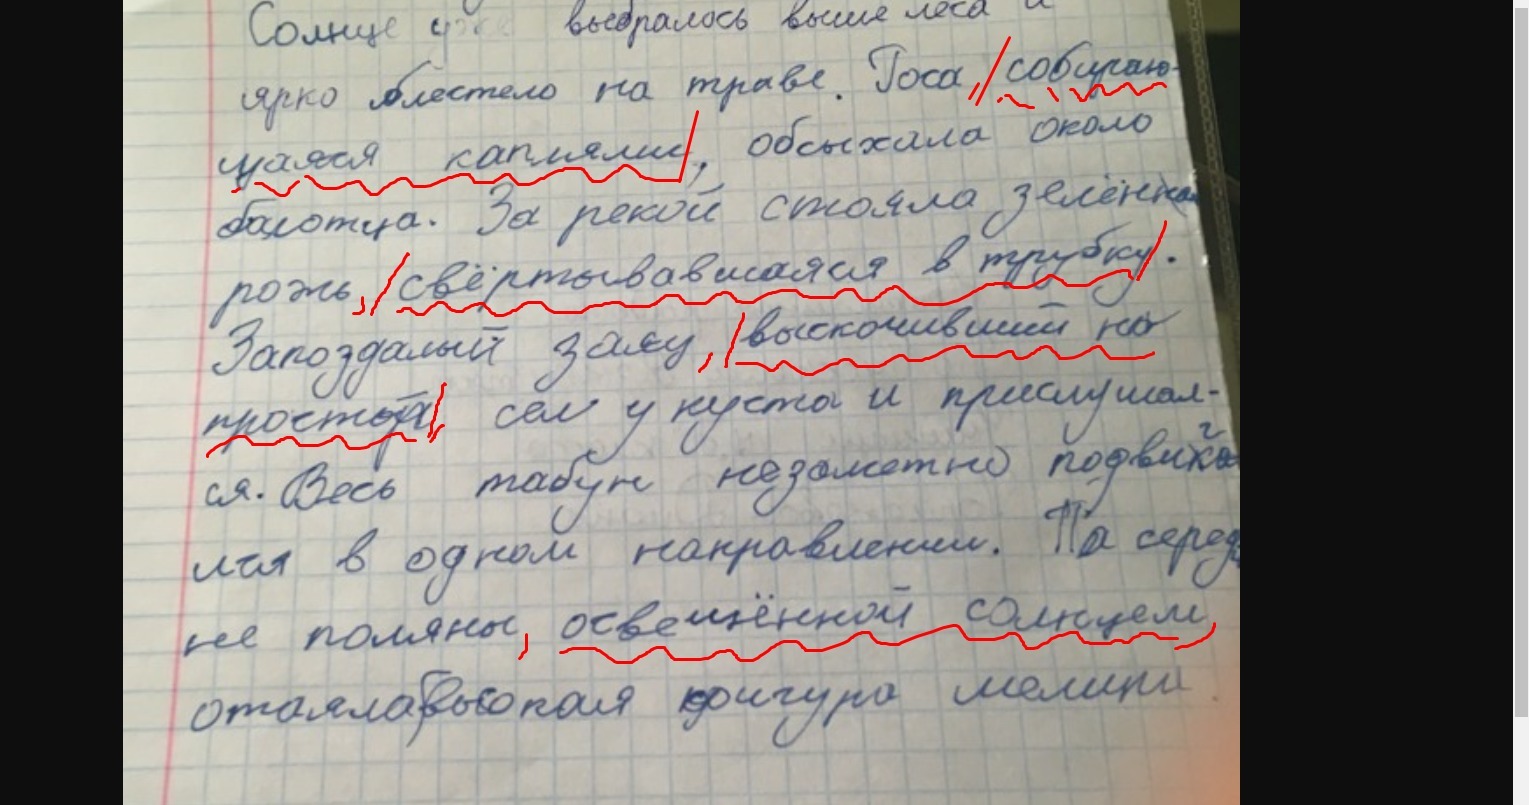 Солнце уже выбралось выше леса и
ярко блестело на траве. Роса, собираю-
щаяся каплями, обсыхала около
болотца. За рекой стояла зелённая
рожь, свёртывавшаяся в трубку.
Запоздалый заяц, выскочивший на
простор, сел у куста и прислушал-
ся. Весь табун незаметно подвига
лся в одном направлении. По середи
не поляны, освещённой солнцем,
стояла высокая фигура мелина.